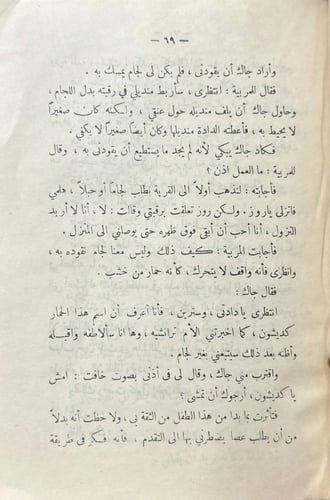 — ٦٩ —
وأراد جاك أن يقودنى ، فلم يكن لى لجام يمسك به .
فقال للمربية : انتظرى ، سأربط منديلى في رقبته بدل اللجام ،
وحاول جاك أن يلف منديله حول عنقى ، ولكنه كان صغيراً
لا يحيط به ، فأعطته الدادة منديلها وكان أيضاً صغيراً لا يكفي .
فكاد جاك يبكي لأنه لم يجد ما يستطيع أن يقودنى به ، وقال
للمربية : ما العمل اذن ؟
فأجابته : لنذهب أولاً الى القرية نطلب لجاماً أو حبلاً ، هلمى
فانزلى ياروز . ولكن روز تعلقت برقبتي وقالت : لا ، أنا لا أريد
النزول ، أنا أحب أن أبقى فوق ظهره حتى يوصلنى الى المنزل .
فأجابت المربية : كيف ذلك وليس معنا لجام نقوده به ،
وانظرى فأنه واقف لا يتحرك ، كأنه حمار من خشب .
فقال جاك :
انتظرى يا دادتى ، وسترين ، فأنا أعرف أن اسم هذا الحمار
كديشون ، كما اخبرتني الأم ترانشيه ، وها انا سألاطفه واقبله
وأظنه بعد ذلك سيتبعنى بغير لجام .
واقترب منى جاك ، وقال لى فى أذنى بصوت خافت : امش
يا كديشون ، أرجوك أن تمشى ؟
فتأثرت بما بدا من هذا الطفل من الثقة بى ، ولاحظت أنه بدلاً
من أن يطلب عصا يضطرنى بها الى التقدم ، فأنه فكر فى طريقة